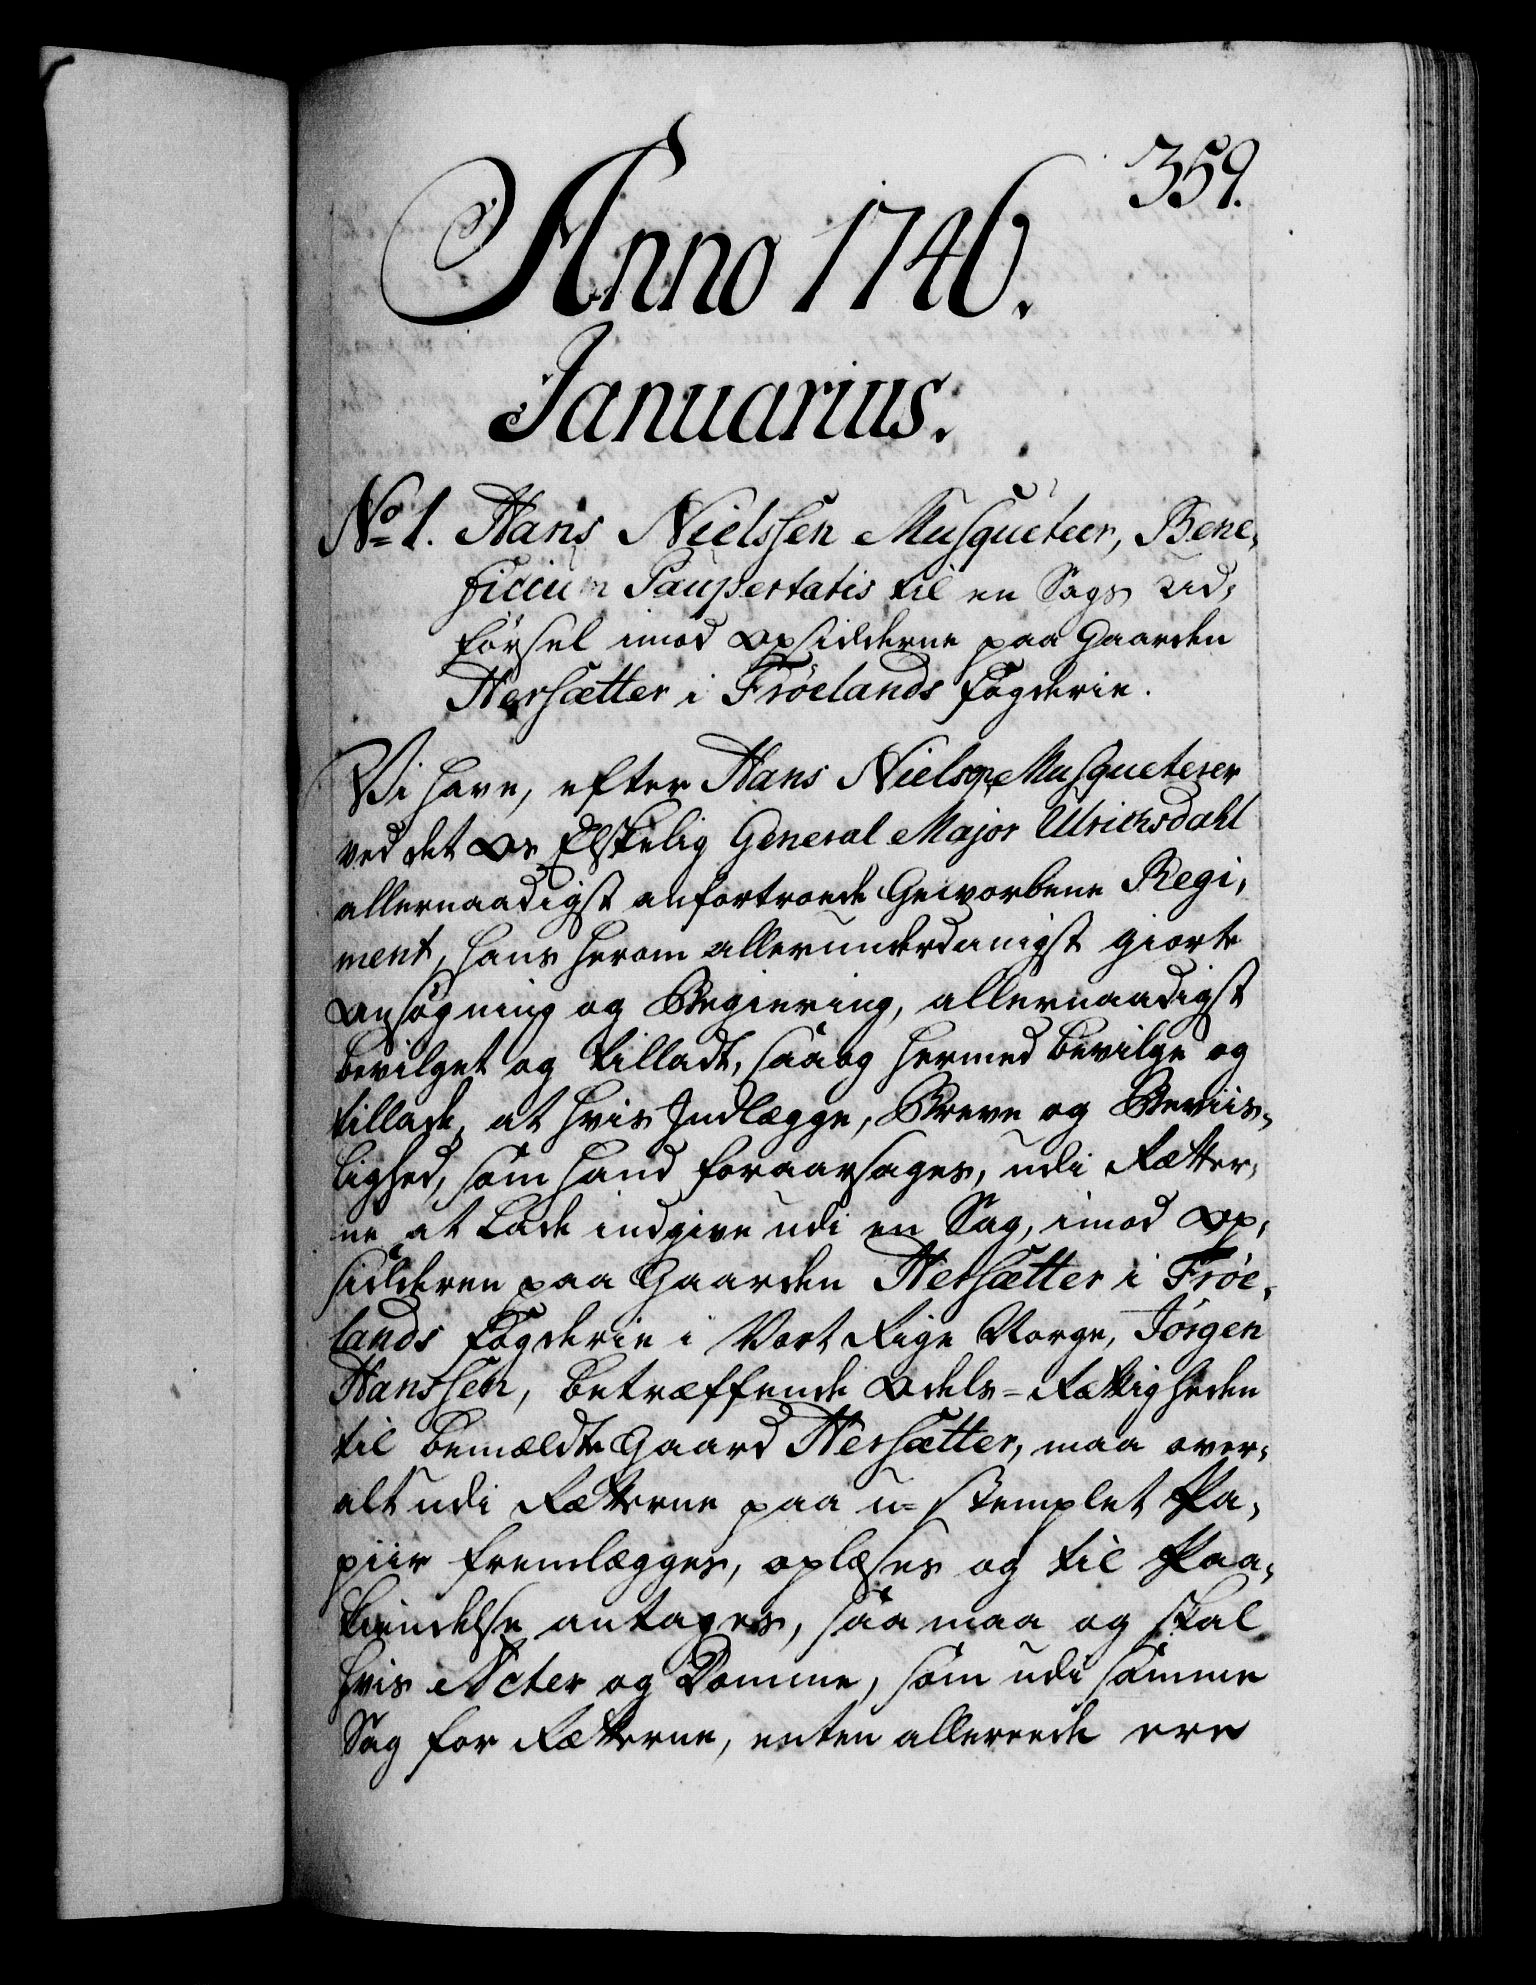 359.
Anno 1746.
Januarius.
No 1. Hans Nielssen Musqueteer, Bene,
ficium Paupertatis til en Sags Ud,
førsel imod Opsidderne paa Gaarden
Hersætter i Frøelands Fogderie.
Vi have, efter Hans Nielsen Musqueterer
ved det Os Elskelig General Major Ulrichsdahl
allernaadigst anfortroede Geworbene Regi,
ment, hans herom allerunderdanigst giorte
Ansøgning og Begiering, allernaadigst
bevilget og tilladt, saa og hermed bevilge og
tillade, at hvis Indlægge, Breve og Beviis,
lighed, som hand foraarsages, udi Rætter,
ne at lade indgive udi en Sag, imod Op,
sidderen paa Gaarden Hersætter i Frøe,
lands Fogderie i Vort Rige Norge, Jørgen
Hanssen, betræffende Odels-Rættigheden
til bemældte Gaard Hersætter, maa over,
alt udi Rætterne paa u-stemplet Pa,
piir fremlægges, oplæses og til Paa,
kiendelse antages, saa maa og skal
hvis Acter og Domme, som udi samme
Sag for Rætterne, enten allereede ere